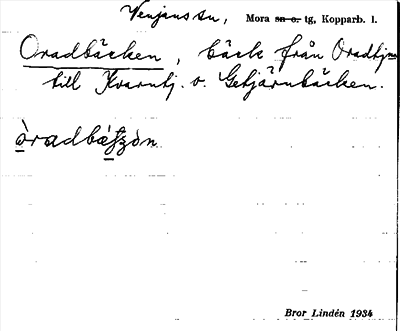 Venjans sn, Mora sn o. tg, Kopparb. l.
Oradbäcken, bäck från Oradtjn
till Kvarntj. o. Getjärnbäcken.
òradbäʃzòn
Bror Lindén 1934